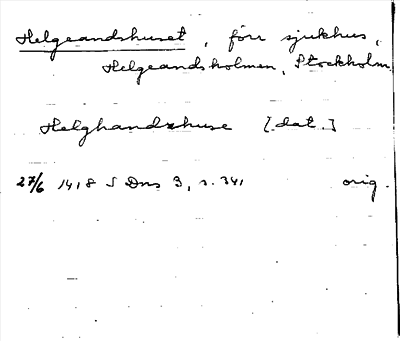 Helgeandshuset, förr sjukhus,
Helgeandsholmen, Stockholm.
Helghandzhuse [dat.]
27/6 1418 S Dns 3, s. 341 orig.